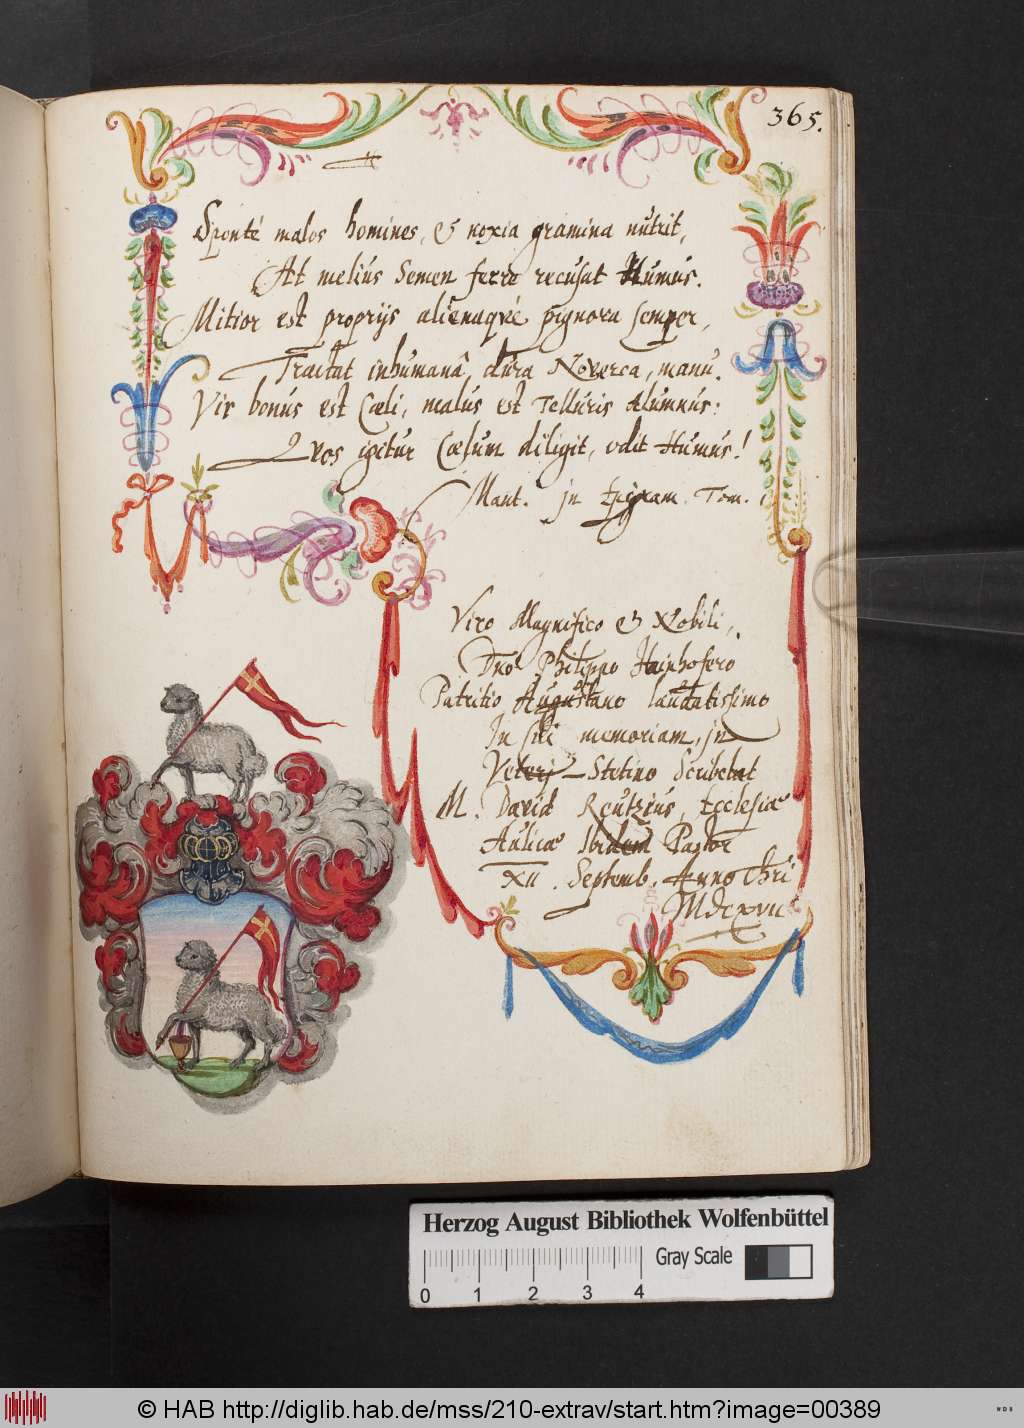 365.
Sponté malos homines, & noxia gramina nutrit,
At meliùs Semen ferre recusat Humus.
Mitior est proprijs alienaqué pignora semper,
Tractat inhumanâ, dura Noverca, manu.
Vir bonus est Cœli, malus est Telluris Alumnus:
Quos igitur Cœlum diligit, odit Humus!
Mant. in Epigram. Tom.
Viro Magnifico & Nobili,
Dno Philippo Hainhofero
Patritio Augustano laudatissimo
In sui memoriam, in
Veteri Stetino Scribebat
M. David Reutzius, Ecclesiæ
Aulicæ Ibidem Pastor
XII. Septemb. Anno Chri
MDCXVII
Herzog August Bibliothek Wolfenbüttel
Gray Scale
0 1 2 3 4
© HAB http://diglib.hab.de/mss/210-extrav/start.htm?image=00389